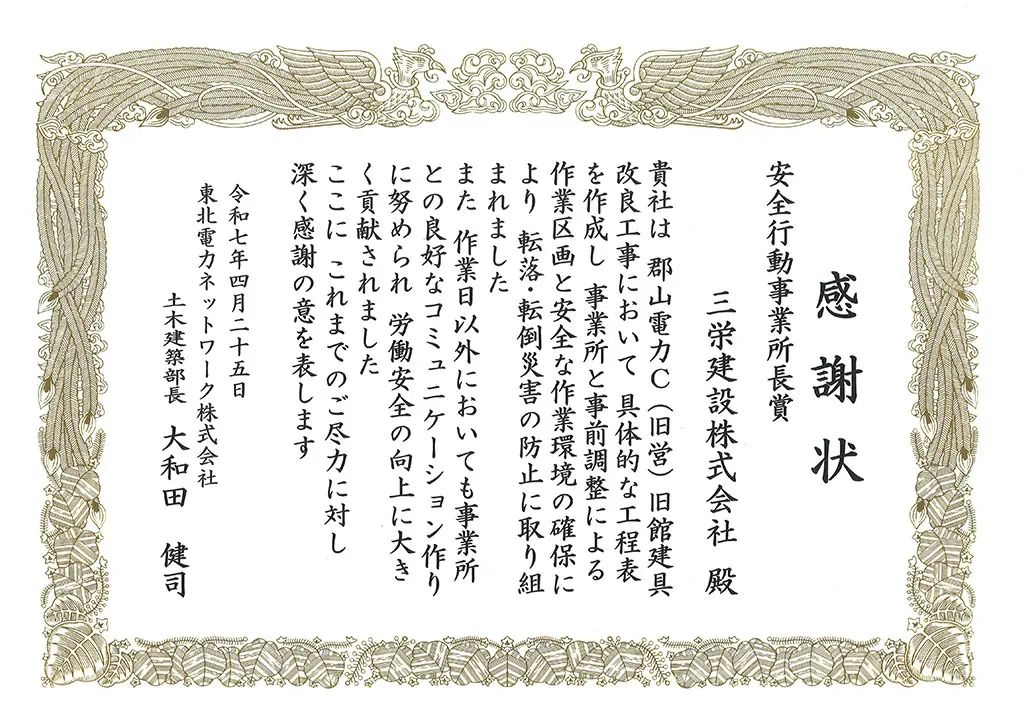 感謝状
安全行動事業所長賞
三栄建設株式会社 殿
貴社は 郡山電力C(旧営)旧館建具
改良工事において 具体的な工程表
を作成し 事業所と事前調整による
作業区画と安全な作業環境の確保に
より 転落・転倒災害の防止に取り組
まれました
また 作業日以外においても事業所
との良好なコミュニケーション作り
に努められ 労働安全の向上に大き
く貢献されました
ここに これまでのご尽力に対し
深く感謝の意を表します
令和七年四月二十五日
東北電力ネットワーク株式会社
土木建築部長 大和田 健司